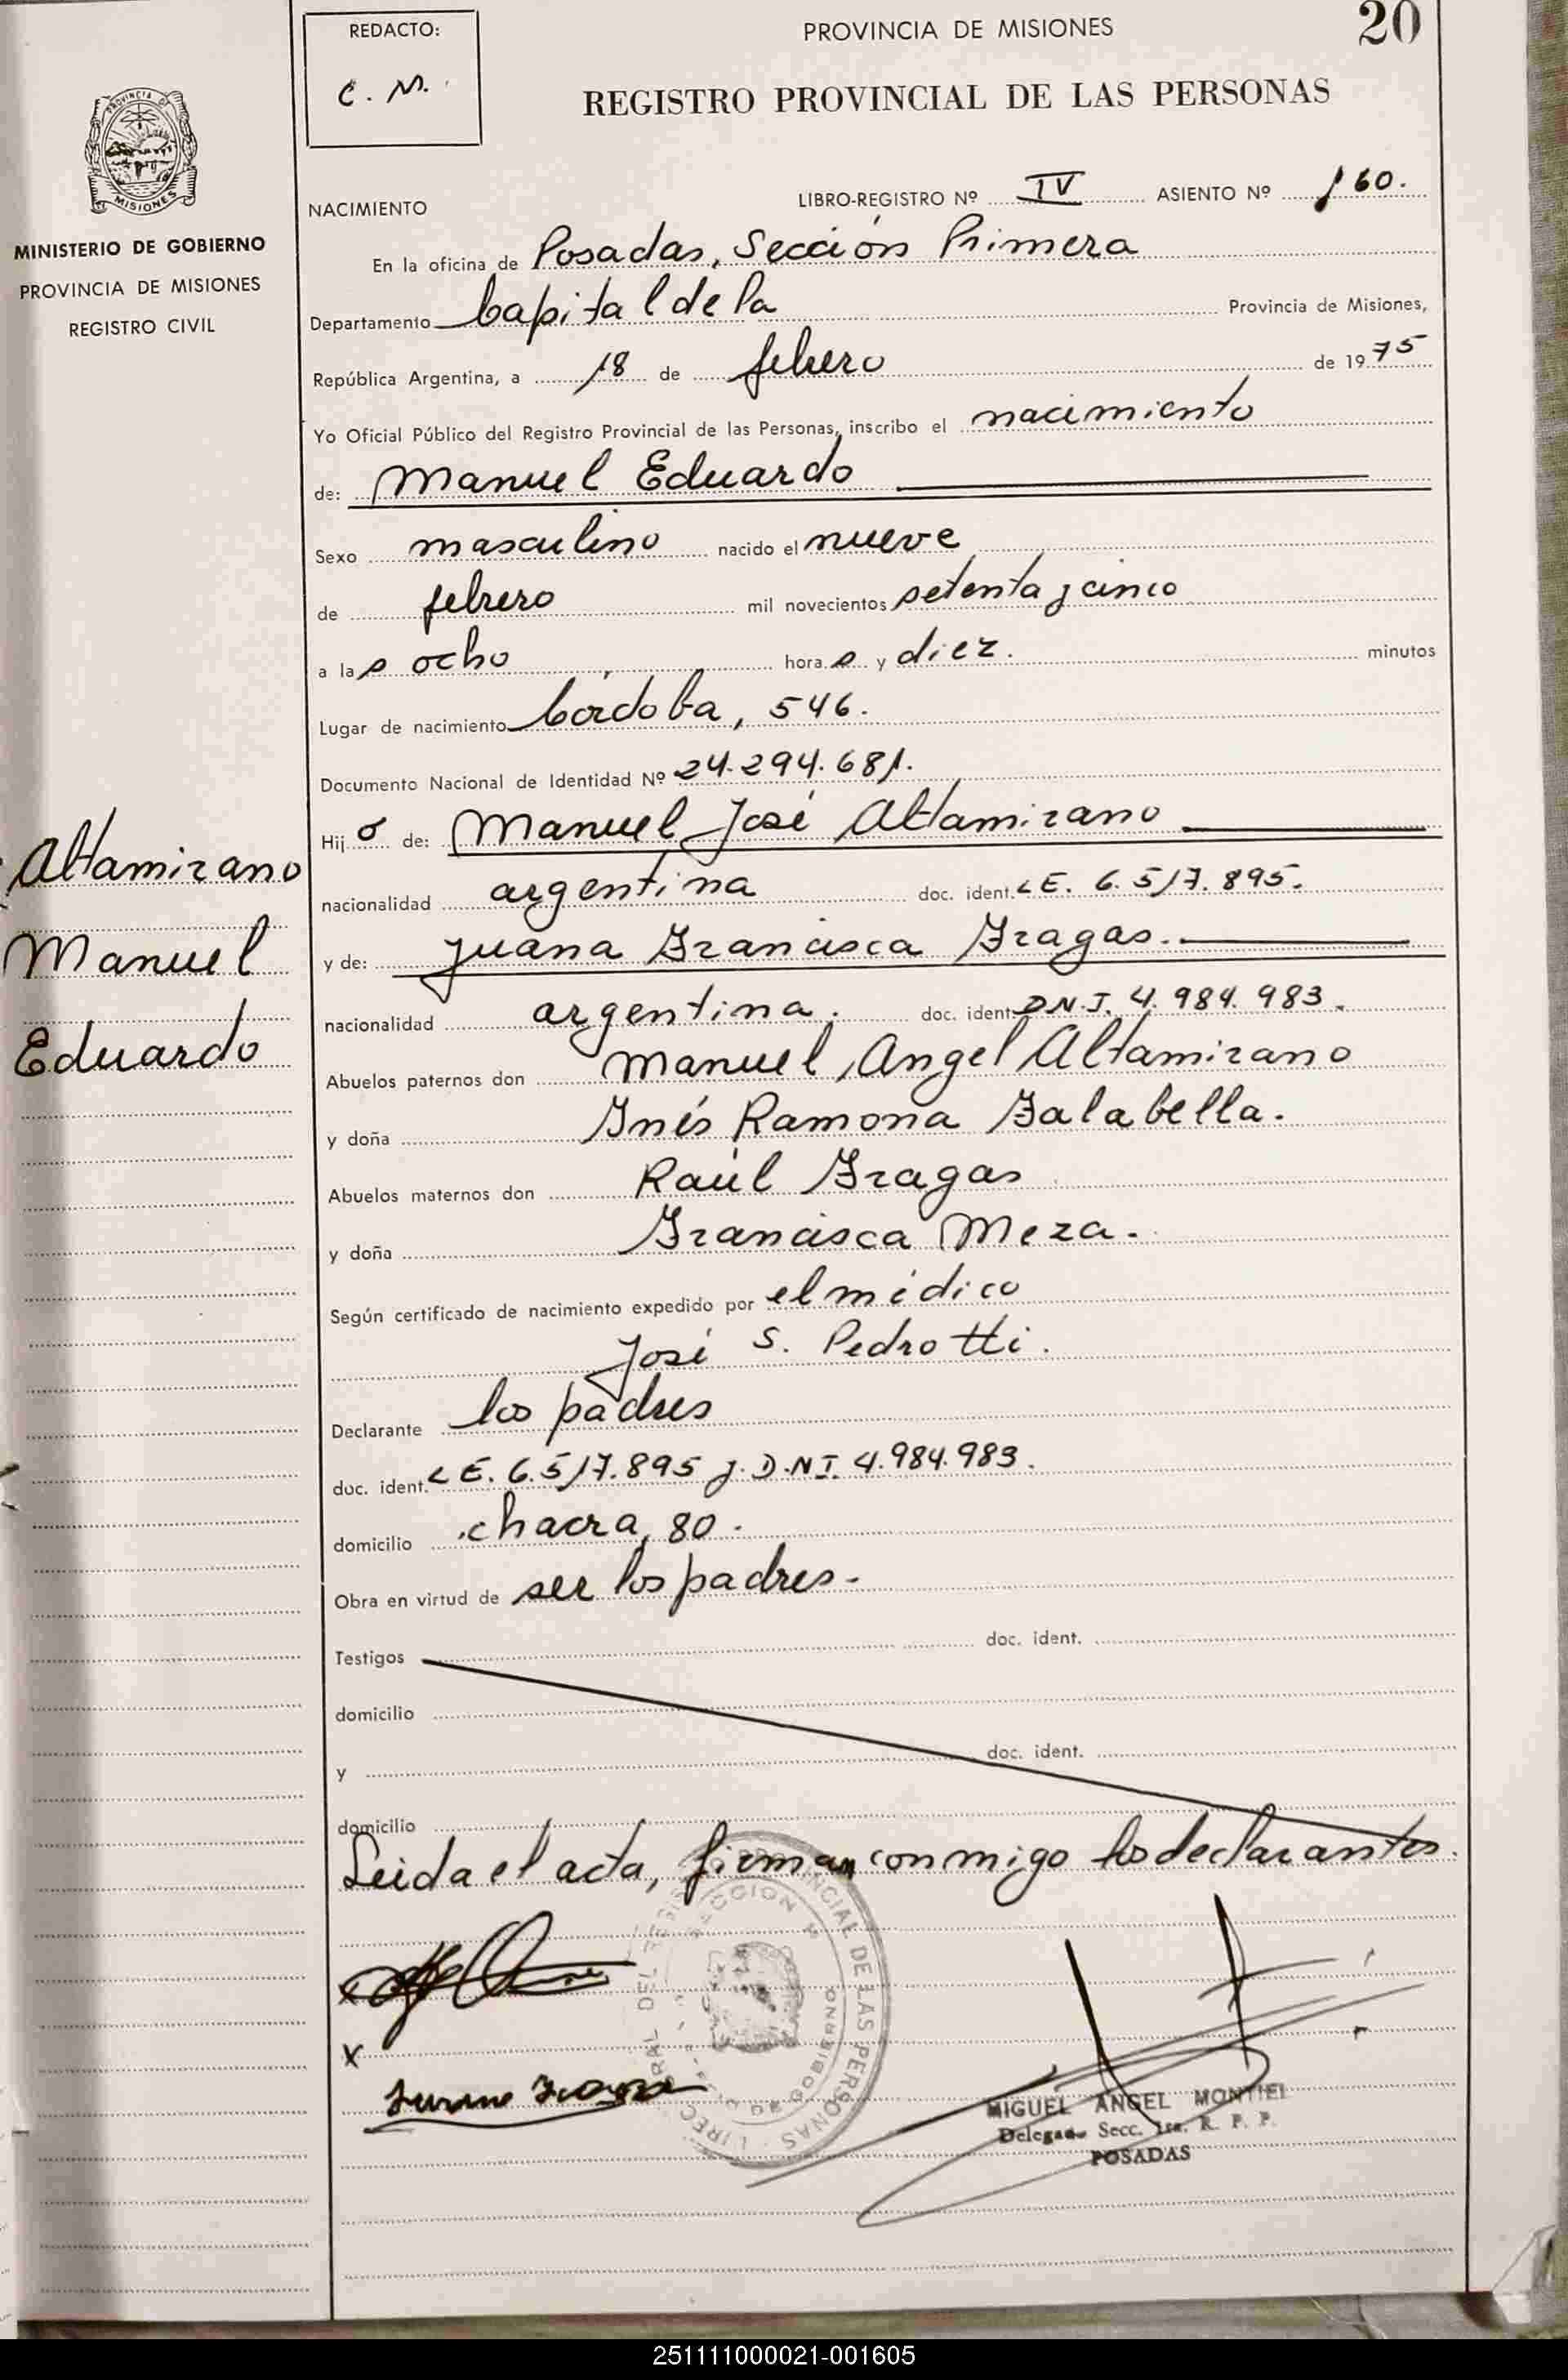 REDACTO:
C. M.
PROVINCIA DE MISIONES
20
REGISTRO PROVINCIAL DE LAS PERSONAS
PROVINCIA DE
MISIONES
MINISTERIO DE GOBIERNO
PROVINCIA DE MISIONES
REGISTRO CIVIL
NACIMIENTO
LIBRO-REGISTRO Nº IV ASIENTO Nº 160.
En la oficina de Posadas, Sección Primera
Departamento Capital de la Provincia de Misiones,
República Argentina, a 18 de febrero de 1975
Yo Oficial Público del Registro Provincial de las Personas, inscribo el nacimiento
de: Manuel Eduardo
Sexo masculino nacido el nueve
de febrero mil novecientos setenta y cinco
a las ocho horas y diez. minutos
Lugar de nacimiento Córdoba, 546.
Documento Nacional de Identidad Nº 24.294.681.
Hijo de: Manuel José Altamirano
Altamirano
nacionalidad argentina doc. ident. LE. 6.517.895.
Manuel
y de: Juana Francisca Fragas.
nacionalidad argentina. doc. ident. D.N.I. 4.984.983.
Eduardo
Abuelos paternos don Manuel Angel Altamirano
y doña Inés Ramona Falabella.
Abuelos maternos don Raúl Fragas
y doña Francisca Meza.
Según certificado de nacimiento expedido por el médico
José S. Pedrotti.
Declarante los padres
doc. ident. LE. 6.517.895 y D.N.I. 4.984.983.
domicilio chacra, 80.
Obra en virtud de ser los padres.
Testigos doc. ident.
domicilio
y doc. ident.
domicilio
Leida el acta, firman conmigo los declarantes.
x
x
MIGUEL ANGEL MONTIEL
Delegado Secc. 1ra. R. P. P.
POSADAS
251111000021-001605